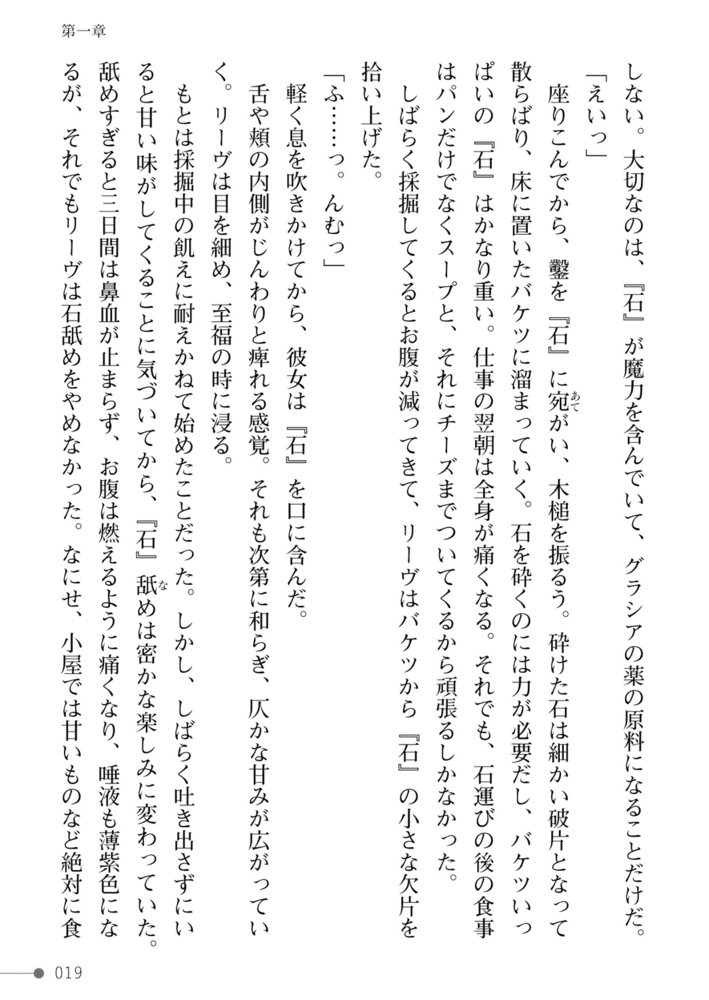 第一章
しない。大切なのは、『石』が魔力を含んでいて、グラシアの薬の原料になることだけだ。
「えいっ」
座りこんでから、鑿を『石』に宛がい、木槌を振るう。砕けた石は細かい破片となって
散らばり、床に置いたバケツに溜まっていく。石を砕くのには力が必要だし、バケツいっ
ぱいの『石』はかなり重い。仕事の翌朝は全身が痛くなる。それでも、石運びの後の食事
はパンだけでなくスープと、それにチーズまでついてくるから頑張るしかなかった。
しばらく採掘してくるとお腹が減ってきて、リーヴはバケツから『石』の小さな欠片を
拾い上げた。
「ふ……っ。んむっ」
軽く息を吹きかけてから、彼女は『石』を口に含んだ。
舌や頬の内側がじんわりと痺れる感覚。それも次第に和らぎ、仄かな甘みが広がってい
く。リーヴは目を細め、至福の時に浸る。
もとは採掘中の飢えに耐えかねて始めたことだった。しかし、しばらく吐き出さずにい
ると甘い味がしてくることに気づいてから、『石』舐めは密かな楽しみに変わっていた。
舐めすぎると三日間は鼻血が止まらず、お腹は燃えるように痛くなり、唾液も薄紫色にな
るが、それでもリーヴは石舐めをやめなかった。なにせ、小屋では甘いものなど絶対に食
019